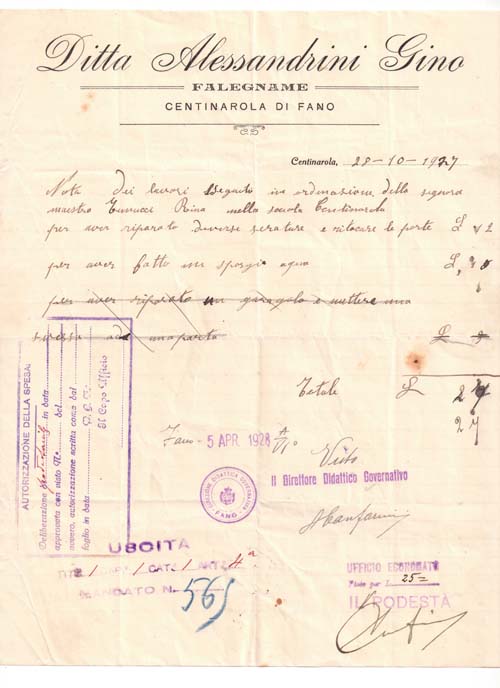 Ditta Alessandrini Gino
FALEGNAME
CENTINAROLA DI FANO
Centinarola, 28-10-1927
Nota dei lavori eseguito in ordinazione della signora
maestra Rina nella scuola Centinarola
per aver riparato diverse serature e ritocare le porte L
per aver fatto un sporgi acqua L,
per aver riparato un e mettere una
ad una porta L
Totale L 27
27
AUTORIZZAZIONE DELLA SPESA:
Deliberazione in data
approvata con visto N. del
ovvero, autorizzazione scritta come dal
foglio in data
Il Capo Ufficio
Fano - 5 APR. 1928
Visto
Il Direttore Didattico Governativo
DIREZIONE DIDATTICA GOVERNATIVA
FANO
USCITA
TIT. 1 CAP. 1 CAT. 1 ART. 4
MANDATO N. 565
UFFICIO ECONOMATO
Visto per L. 25=
IL PODESTÀ